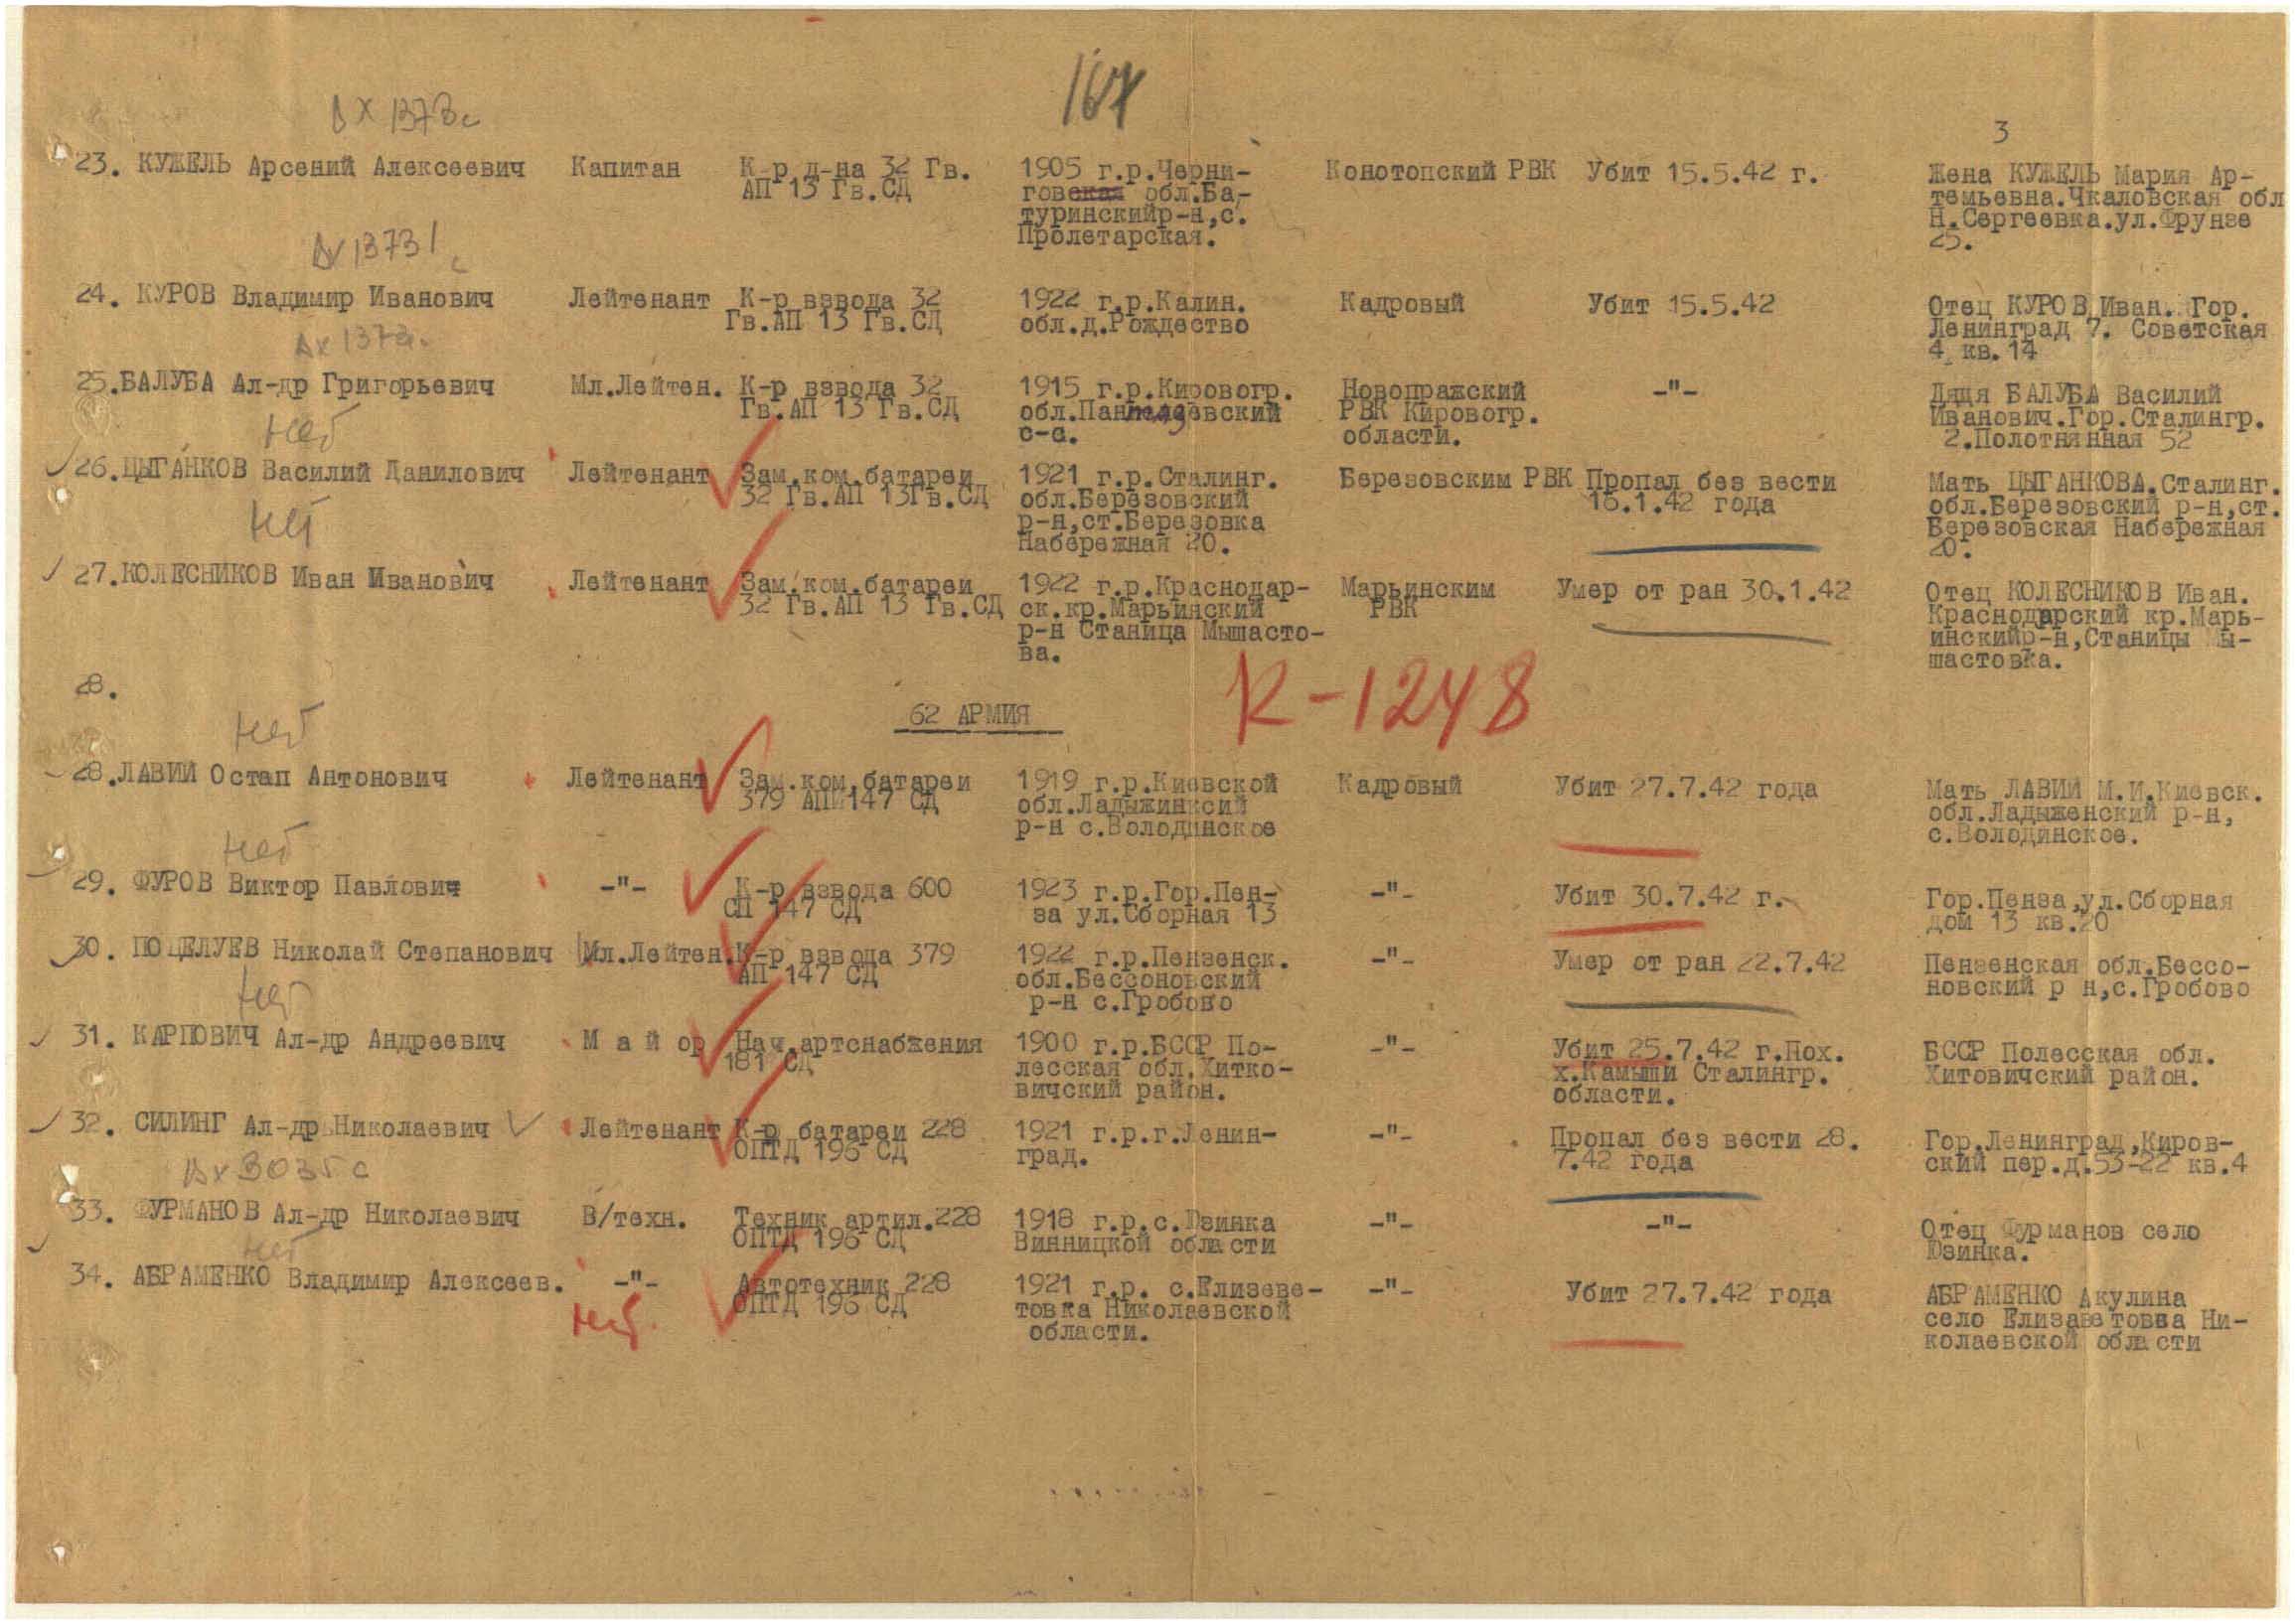 167
3
Вх 1373с
23. КУЖЕЛЬ Арсений Алексеевич Капитан К-р д-на 32 Гв. 1905 г.р.Черни- Конотопский РВК Убит 15.5.42 г. Жена КУЖЕЛЬ Мария Ар-
АП 13 Гв.СД говская обл.Ба- темьевна.Чкаловская обл
туринскийр-н,с. Н.Сергеевка.ул.Фрунзе
Пролетарская. 25.
Вх 1373
24. КУРОВ Владимир Иванович Лейтенант К-р взвода 32 1922 г.р.Калин. Кадровый Убит 15.5.42 Отец КУРОВ Иван. Гор.
Гв.АП 13 Гв.СД обл.д.Рождество Ленинград 7. Советская
4 кв.14
Вх 1373с
25.БАЛУБА Ал-др Григорьевич Мл.Лейтен. К-р взвода 32 1915 г.р.Кировогр. Новопражский -"- Дядя БАЛУБА Василий
Гв.АП 13 Гв.СД РВК Кировогр. Иванович.Гор.Сталингр.
с-с. области. 2.Полотнянная 52
нет
26.ЦЫГАНКОВ Василий Данилович Лейтенант Зам.ком.батареи 1921 г.р.Сталинг. Березовским РВК Пропал без вести Мать ЦЫГАНКОВА.Сталинг.
32 Гв.АП 13Гв.СД обл.Березовский 16.1.42 года обл.Березовский р-н,ст.
р-н,ст.Березовка Березовская Набережная
Набережная 20. 20.
нет
27.КОЛЕСНИКОВ Иван Иванович Лейтенант Зам.ком.батареи 1922 г.р.Краснодар- Марьинским Умер от ран 30.1.42 Отец КОЛЕСНИКОВ Иван.
32 Гв.АП 13 Гв.СД ск.кр.Марьинский РВК Краснодарский кр.Марь-
р-н Станица Мышасто- инскийр-н,Станицы Мы-
ва. шастовка.
28.
62 АРМИЯ
К-1248
нет
28.ЛАВИЙ Остап Антонович Лейтенант Зам.ком.батареи 1919 г.р.Киевской Кадровый Убит 27.7.42 года Мать ЛАВИЙ М.И.Киевск.
379 АП 147 СД обл.Ладыжинксий обл.Ладыженский р-н,
р-н с.Володинское с.Володинское.
нет
29. ФУРОВ Виктор Павлович -"- К-р взвода 600 1923 г.р.Гор.Пен- -"- Убит 30.7.42 г. Гор.Пенза,ул.Сборная
СП 147 СД за ул.Сборная 13 дом 13 кв.20
30. ПОЦЕЛУЕВ Николай Степанович Мл.Лейтен.К-р взвода 379 1922 г.р.Пензенск. -"- Умер от ран 22.7.42 Пензенская обл.Бессо-
АП 147 СД обл.Бессоновский новский р н,с.Гробово
р-н с.Гробово
нет
31. КАРПОВИЧ Ал-др Андреевич М а й ор Нач.артснабжения 1900 г.р.БССР По- -"- Убит 25.7.42 г.Пох. БССР Полесская обл.
181 СД лесская обл.Хитко- х.Камыши Сталингр. Хитовичский район.
вичский район. области.
32. СИЛИНГ Ал-др Николаевич Лейтенант К-р батареи 228 1921 г.р.г.Ленин- -"- Пропал без вести 28. Гор.Ленинград,Киров-
ОПТД 196 СД град. 7.42 года ский пер.д.53-22 кв.4
Вх 3035с
33. ФУРМАНОВ Ал-др Николаевич В/техн. Техник артил.228 1918 г.р.с.Юзинка -"- -"- Отец Фурманов село
ОПТД 196 СД Винницкой области Юзинка.
нет
34. АБРАМЕНКО Владимир Алексеев. -"- Автотехник 228 1921 г.р. с.Елизеве- -"- Убит 27.7.42 года АБРАМЕНКО Акулина
ОПТД 196 СД товка Николаевской село Елизаветовка Ни-
нет. области. колаевской области